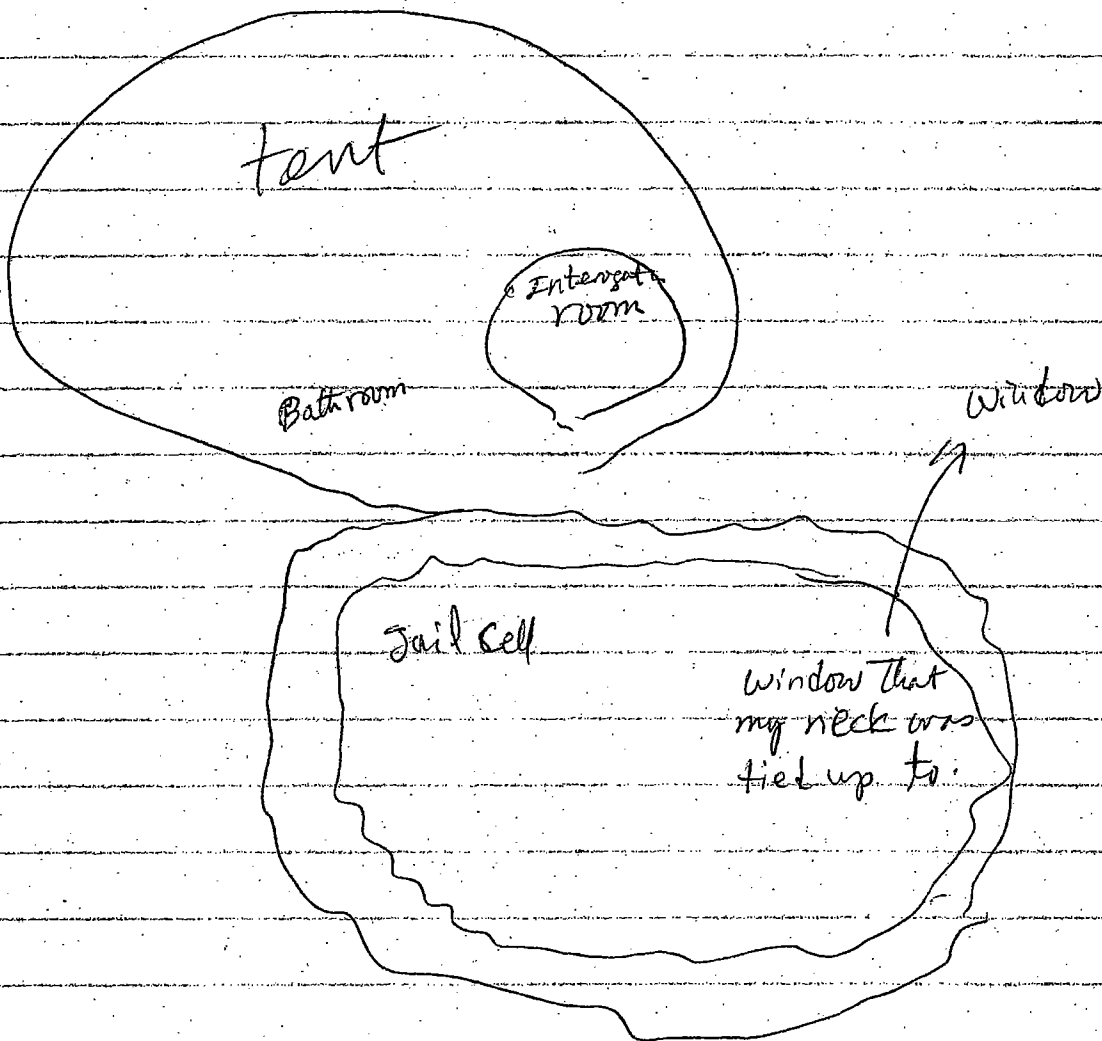 tent
Interogati
room
Bathroom
window
Jail sell
window that
my neck was
tied up to.